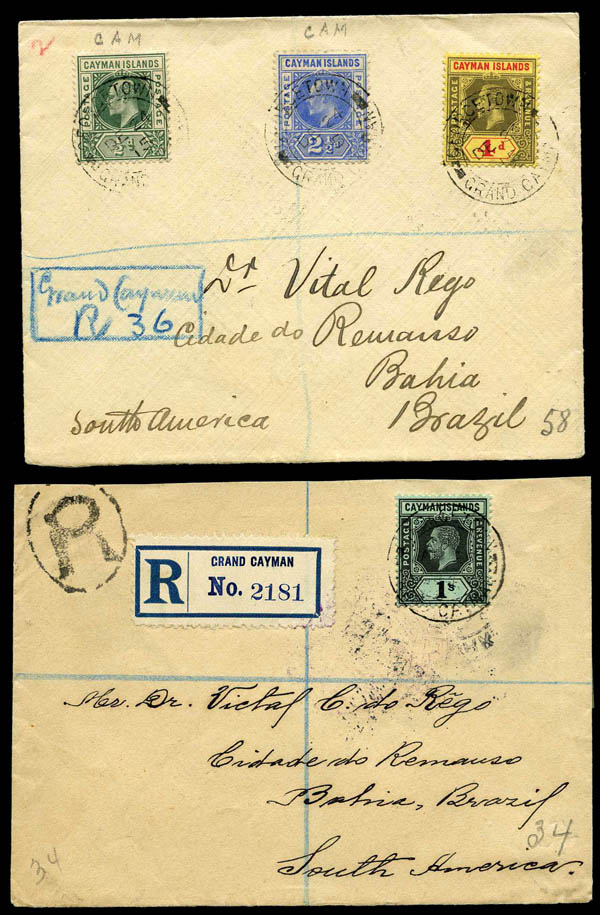 2
CAM
CAM
CAYMAN ISLANDS
POSTAGE
POSTAGE
½d
CAYMAN ISLANDS
POSTAGE
POSTAGE
2½d
CAYMAN ISLANDS
POSTAGE
& REVENUE
4d
GEORGETOWN
GRAND
GEORGETOWN
GRAND CAYMAN
Grand Cayman
R 36
Dr Vital Rego
Cidade do Remanso
Bahia
South America
Brazil
58
R
CAYMAN ISLANDS
POSTAGE
& REVENUE
1s
R
GRAND CAYMAN
No. 2181
Mr. Dr. Victal C. do Rêgo
Cidade do Remanso
Bahia, Brazil
South America.
34
34